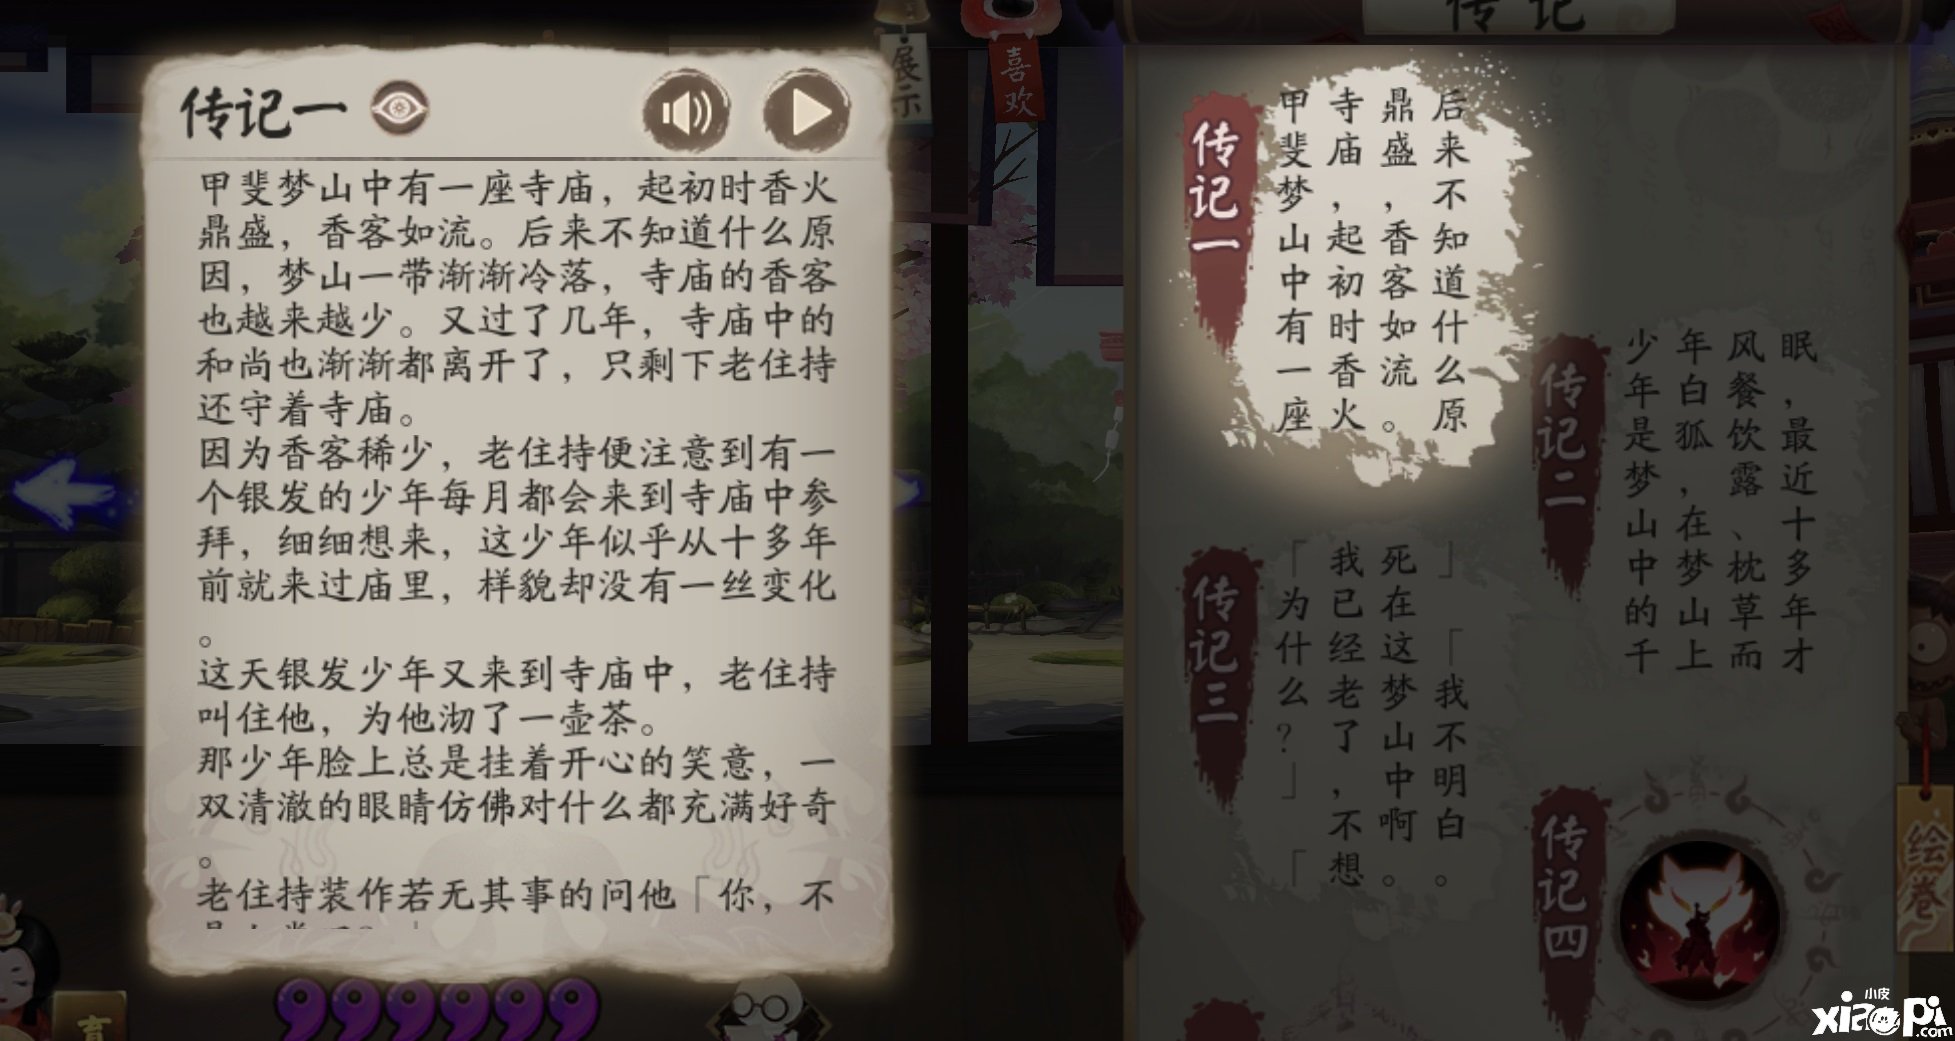 传记一
甲斐梦山中有一座寺庙，起初时香火
鼎盛，香客如流。后来不知道什么原
因，梦山一带渐渐冷落，寺庙的香客
也越来越少。又过了几年，寺庙中的
和尚也渐渐都离开了，只剩下老住持
还守着寺庙。
因为香客稀少，老住持便注意到有一
个银发的少年每月都会来到寺庙中参
拜，细细想来，这少年似乎从十多年
前就来过庙里，样貌却没有一丝变化
。
这天银发少年又来到寺庙中，老住持
叫住他，为他沏了一壶茶。
那少年脸上总是挂着开心的笑意，一
双清澈的眼睛仿佛对什么都充满好奇
。
老住持装作若无其事的问他「你，不
展示
喜欢
传记
传记一
甲斐梦山中有一座
寺庙，起初时香火
鼎盛，香客如流。
后来不知道什么原
传记二
少年是梦山中的千
年白狐，在梦山上
风餐饮露、枕草而
眠，最近十多年才
传记三
「为什么？」「
我已经老了，不想
死在这梦山中啊。
」「我不明白。
传记四
绘卷
育
小皮
xiaopi
.com